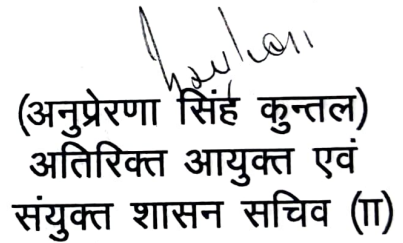 (अनुप्रेरणा सिंह कुन्तल)
अतिरिक्त आयुक्त एवं
संयुक्त शासन सचिव (II)